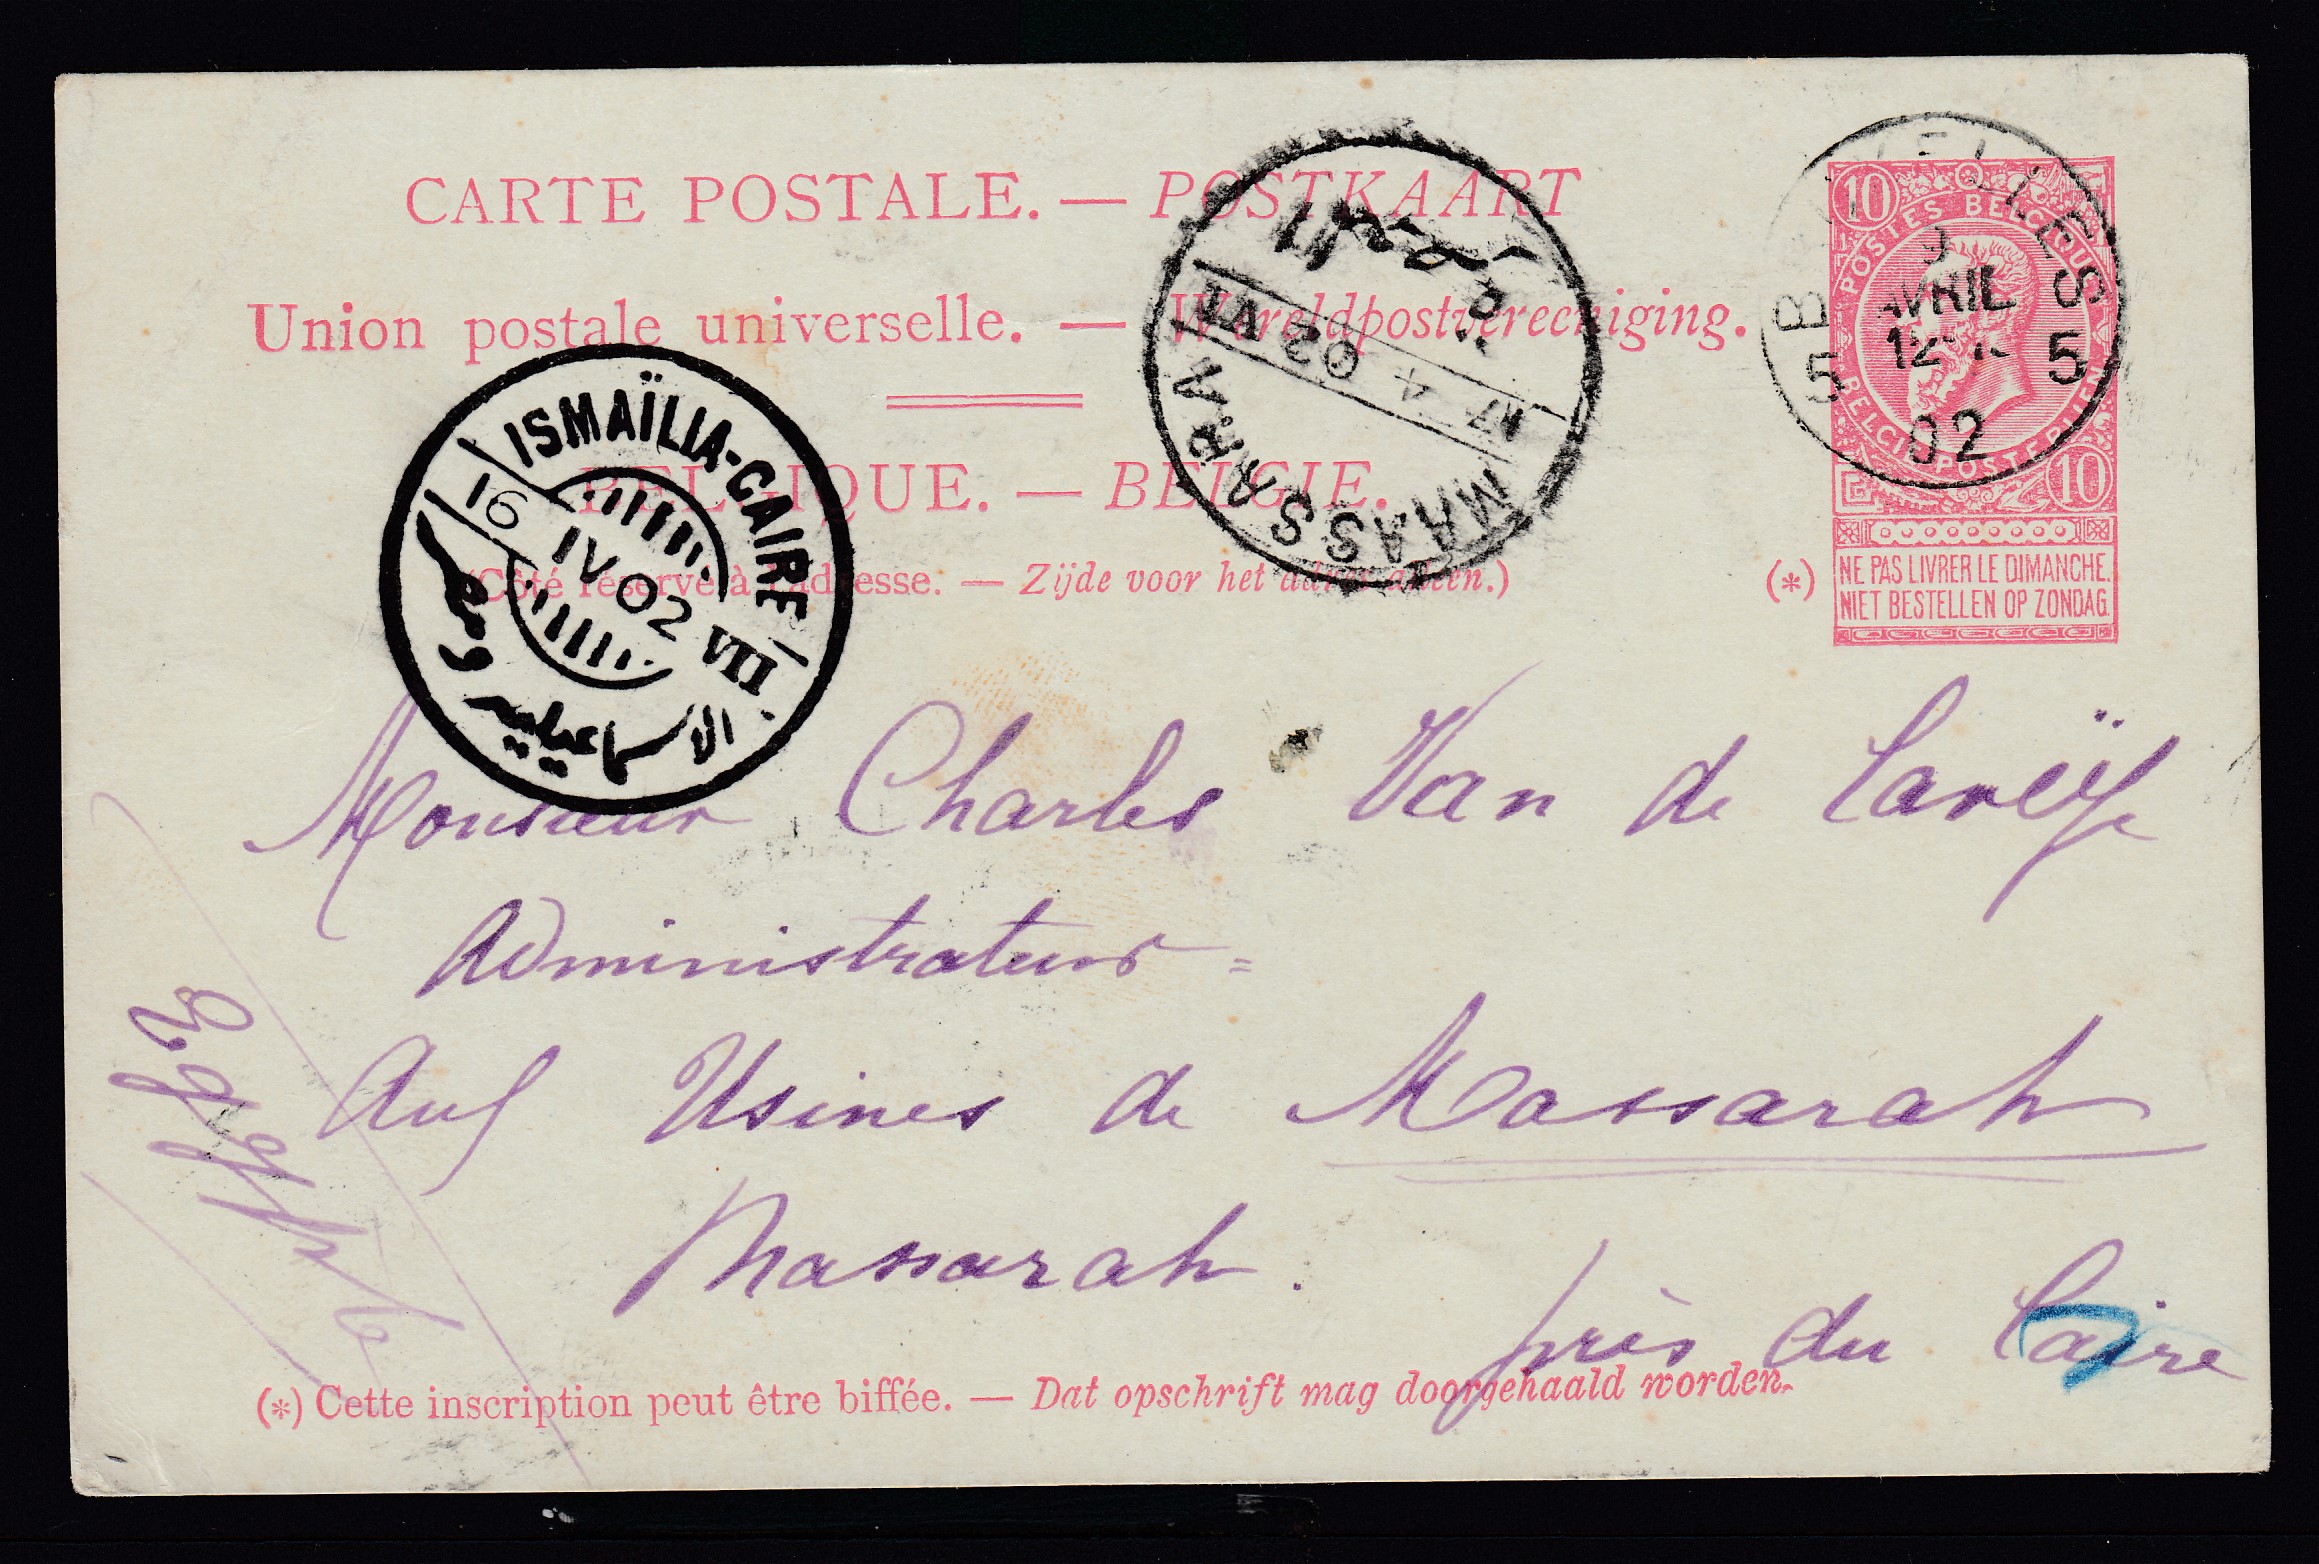 CARTE POSTALE. — POSTKAART
Union postale universelle. — Wereldpostvereeniging.
BELGIQUE. — BELGIE.
(Côté réservé à l'adresse. — Zijde voor het adres alleen.)
10
POSTES BELGIQUE
BELGIË POSTERIJEN
10
(*) NE PAS LIVRER LE DIMANCHE.
NIET BESTELLEN OP ZONDAG.
BRUXELLES
5 5
9
AVRIL
02
MAASSARRA
17 4 02 VI
المعصره
ISMAÏLIA-CAIRE
16 IV 02 VII
الاسماعيليه ومصر
Monsieur Charles Van de
Administrateur =
Aux Usines de Massarah
Massarah.
près du Caire
(*) Cette inscription peut être biffée. — Dat opschrift mag doorgehaald worden.